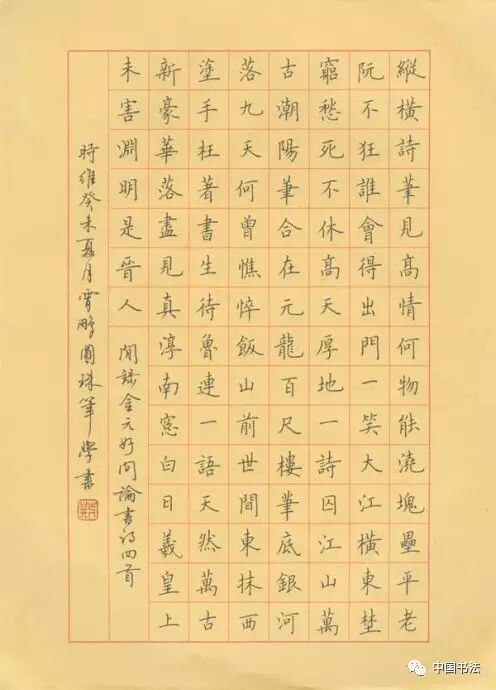 縱橫詩筆見高情何物能澆塊壘平老
阮不狂誰會得出門一笑大江橫東埜
窮愁死不休高天厚地一詩囚江山萬
古潮陽筆合在元龍百尺樓筆底銀河
落九天何曾憔悴飯山前世間東抹西
塗手枉著書生待魯連一語天然萬古
新豪華落盡見真淳南窓白日羲皇上
未害淵明是晉人 閒錄金元好问論書诗四首
時維癸未夏月霄鵬圓珠筆學書
中国书法